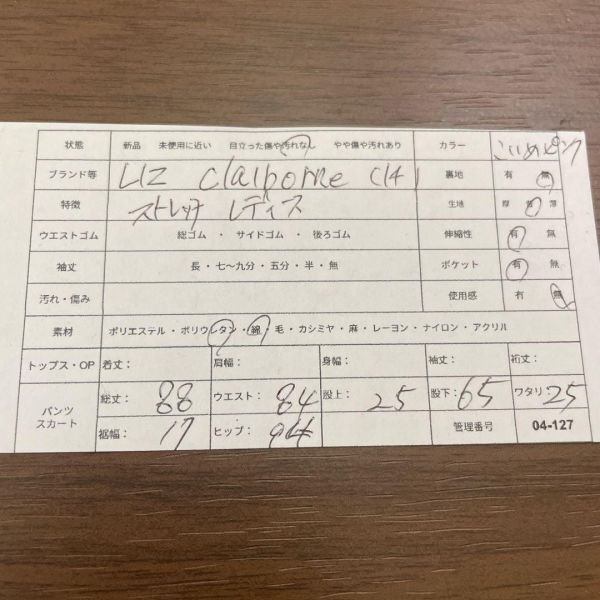 状態 新品 未使用に近い 目立った傷や汚れなし やや傷や汚れあり カラー こいめピンク
ブランド等 LIZ claiborne C14 裏地 有 無
特徴 ストレッチ レディス 生地 厚 普 薄
ウエストゴム 総ゴム ・ サイドゴム ・ 後ろゴム 伸縮性 有 無
袖丈 長・七〜九分・五分・半・無 ポケット 有 無
汚れ・傷み 使用感 有 無
素材 ポリエステル・ポリウレタン・綿・毛・カシミヤ・麻・レーヨン・ナイロン・アクリル
トップス・OP 着丈: 肩幅: 身幅: 袖丈: 裄丈:
パンツ スカート 総丈: 88 ウエスト: 84 股上: 25 股下: 65 ワタリ: 25
裾幅: 17 ヒップ: 94 管理番号 04-127